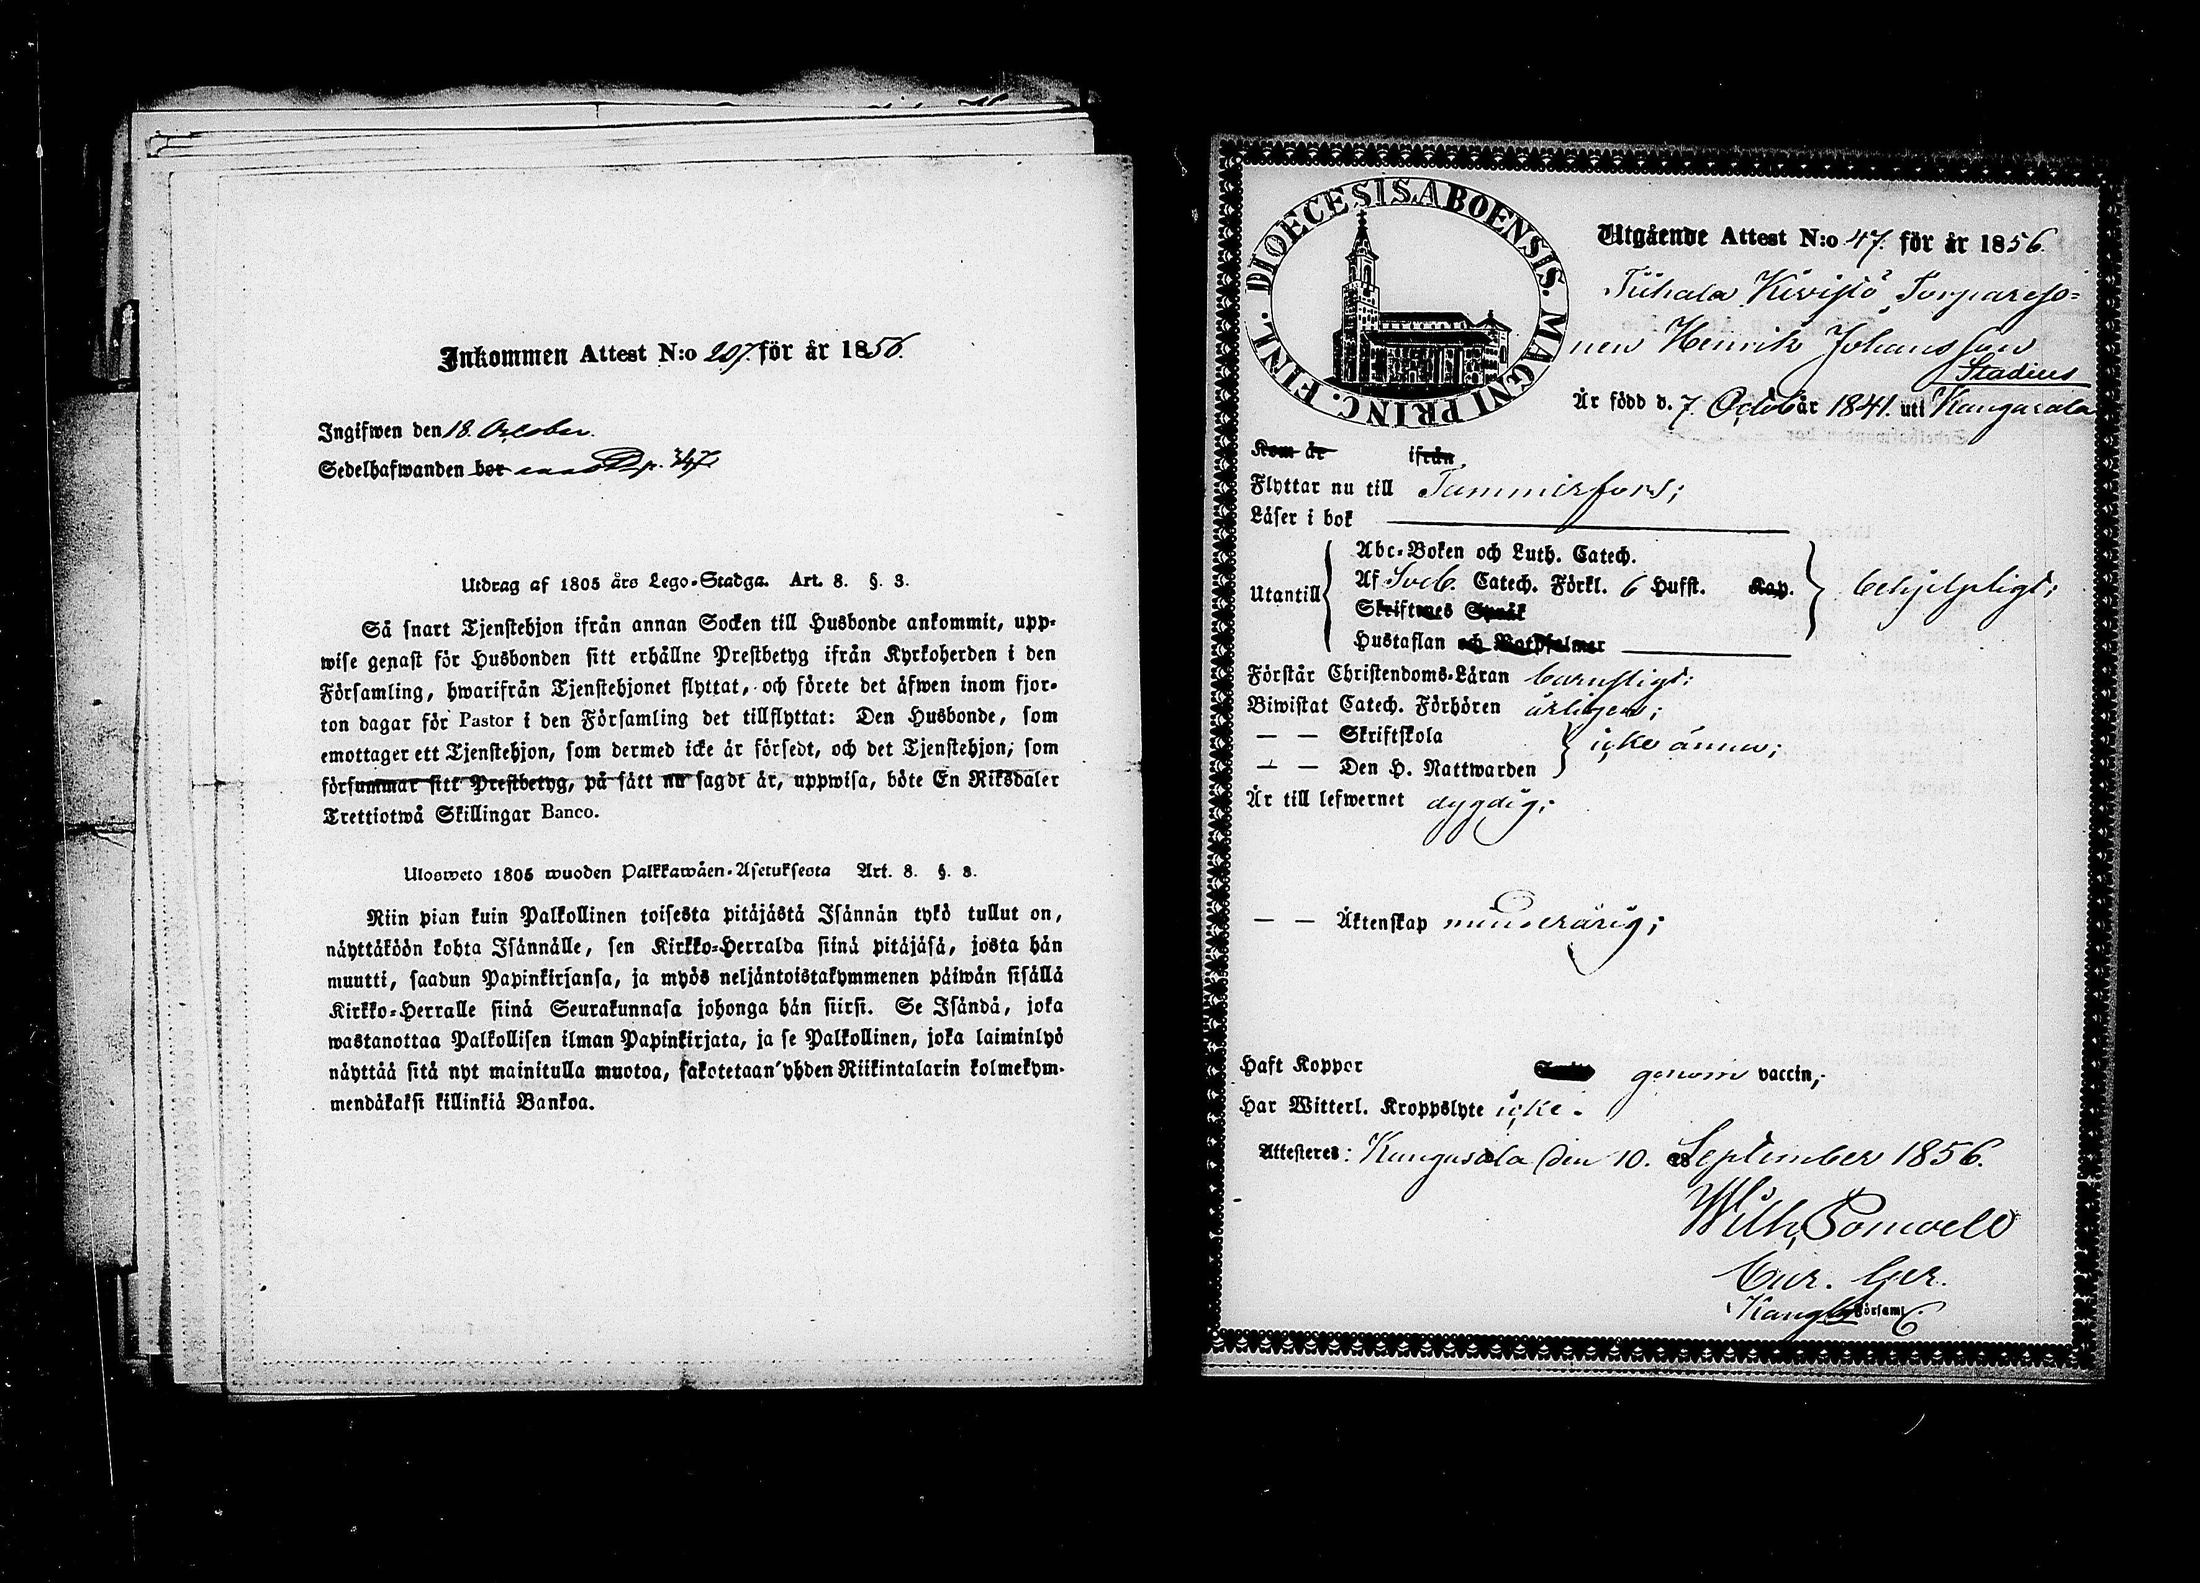 Inkommen Attest N:o 207. för år 1856.
Ingifwen den 18. October.
Sedelhafwanden bor p. 347.
Utdrag af 1805 års Lego-Stadga. Art. 8. §. 3.
Så snart Tjenstehjon ifrån annan Socken till Husbonde ankommit, upp-
wise genast för Husbonden sitt erhållne Prestbetyg ifrån Kyrkoherden i den
Församling, hwarifrån Tjenstehjonet flyttat, och förete det äfwen inom fjor-
ton dagar för Pastor i den Församling det tillflyttat: Den Husbonde, som
emottager ett Tjenstehjon, som dermed icke är försedt, och det Tjenstehjon, som
försummar sitt Prestbetyg, på sätt nu sagdt är, uppwisa, böte En Riksdaler
Trettiotwå Skillingar Banco.
Ulosweto 1805 wuoden Palkkawäen-Asetuksesta Art. 8. §. 3.
Niin pian kuin Palkollinen toisesta pitäjästä Isännän tykö tullut on,
näyttäköön kohta Isännälle, sen Kirkko-Herralda siinä pitäjäsä, josta hän
muutti, saadun Papinkirjansa, ja myös neljäntoistakymmenen päiwän sisällä
Kirkko-Herralle siinä Seurakunnasa johonga hän siirsi. Se Isändä, joka
wastanottaa Palkollisen ilman Papinkirjata, ja se Palkollinen, joka laiminlyö
näyttää sitä nyt mainitulla muotoa, sakotetaan yhden Riikintalarin kolmekym-
mendäkaksi killinkiä Bankoa.
DIOECESIS. ABOENSIS. MAGNI PRINC. FINL.
Utgående Attest N:o 47. för år 1856.
Tiihala Kivistö Torpareso=
nen Henrik Johansson
Stadius
Är född d. 7 Octob är 1841. uti Kangasala
Kom år ifrån
Flyttar nu till Tammerfors;
Läser i bok
Utantill
Abc-Boken och Luth. Catech.
Af Sveb. Catech. Förkl. 6 Hufst. Kap.
Skriftenes Språk
Hustaflan och Botpsalmer
behjelpligt;
Förstår Christendoms-Läran barnsligt;
Biwistat Catech. Förhören årligen;
— — Skriftskola
— — Den H. Nattwarden
icke ännu;
Är till lefwernet dygdig;
— — Äktenskap minderårig;
Haft Koppor genom vaccin,
Har Witterl. Kroppslyte icke.
Attesteres: Kangasala den 10. September 1856.
Wilh.
Cur. Ger.
i Kangla Församl.